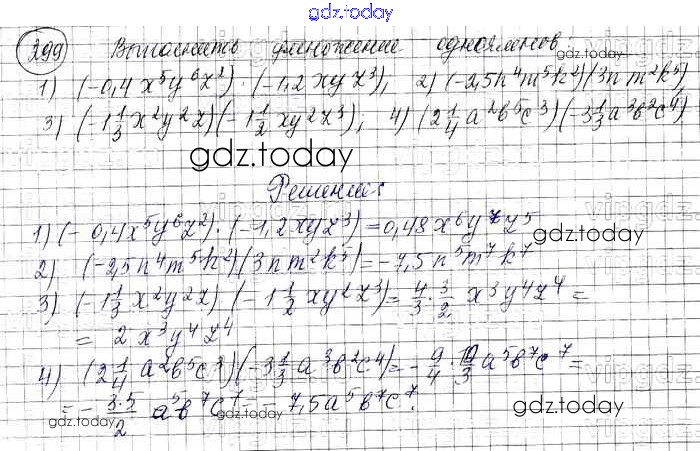 gdz.today
299 Выполнить умножение одночленов:
1) (-0,4x⁵y⁶z²)·(-1,2xyz³), 2) (-2,5n⁴m⁵k²)(3nm²k⁵),
3) (-1 1/3 x²y²z)(-1 1/2 xy²z³); 4) (2 1/4 a²b⁵c³)(-3 1/3 a³b²c⁴)
gdz.today
Решение:
1) (-0,4x⁵y⁶z²)·(-1,2xyz³)=0,48x⁶y⁷z⁵
gdz.today
2) (-2,5n⁴m⁵k²)(3nm²k⁵)=-7,5n⁵m⁷k⁷
3) (-1 1/3 x²y²z)(-1 1/2 xy²z³)= 4/3 · 3/2 x³y⁴z⁴ =
= 2x³y⁴z⁴
4) (2 1/4 a²b⁵c³)(-3 1/3 a³b²c⁴)= - 9/4 · 10/3 a⁵b⁷c⁷ =
= - 3·5/2 a⁵b⁷c⁷ = -7,5a⁵b⁷c⁷.
gdz.today
gdz.today